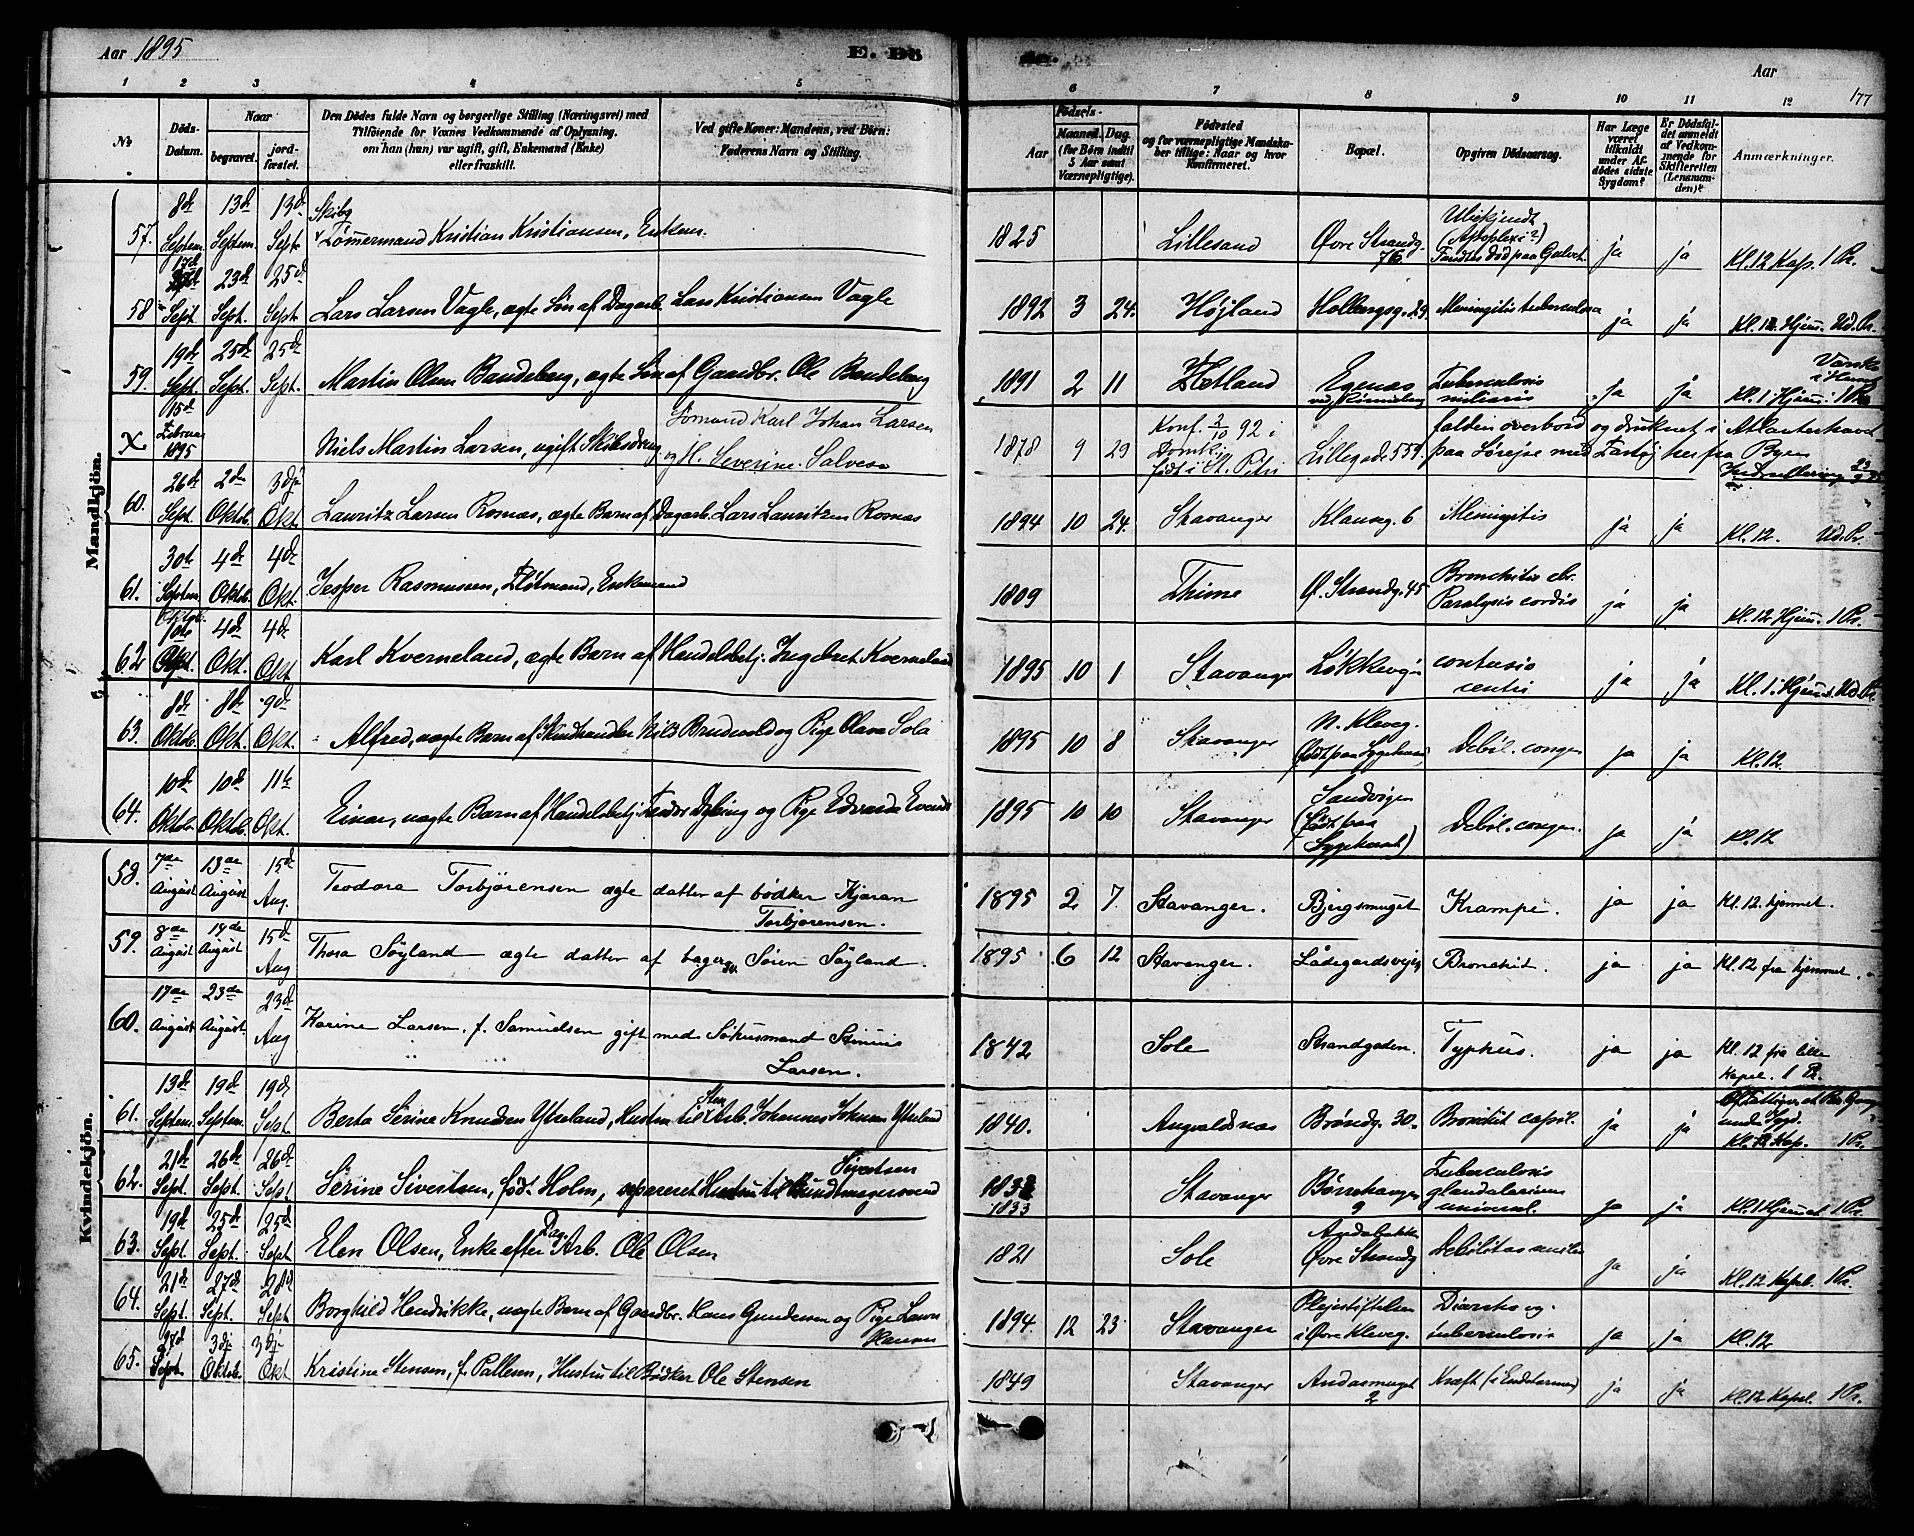 Aar 1895 E. Dö de. Aar 177
1 2 3 4 5 6 7 8 9 10 11 12
No Döds-Datum. Naar begravet. jord-fæstet. Den Dödes fulde Navn og borgerlige Stilling (Næringsvei) med Tilföiende for Voxnes Vedkommende af Oplysning, om han (hun) var ugift, gift, Enkemand (Enke) eller fraskilt. Ved gifte Koner: Mandens, ved Börn: Faderens Navn og Stilling. Födsels- Aar Maaned. Dag. (for Börn indtil 5 Aar samt Værnepligtige). Födested og for værnepligtige Mandskaber tillige: Naar og hvor Konfirmeret. Bopæl. Opgiven Dödsaarsag. Har Læge været tilkaldt under Afdödes sidste Sygdom? Er Dödsfaldet anmeldt af Vedkommende for Skifteretten (Lensmanden)? Anmærkninger.
Mandkjön.
57. 8de Septem. 13de Septem. 13de Sept. Skibs Tømmermand Kristian Kristiansen, Enkem. 1825 Lillesand Øvre Strandg. 76 Ubekjendt (Apoplexi?) Fandtes død paa Gulvet ja ja Kl. 12 Kap. 1 Pr.
58 17de Sept. 23de Sept. 25de Sept. Lars Larsen Vagle, ægte Søn af Dagarb. Lars Kristiansen Vagle 1892 3 24. Højland Holbergsg. 29 Meningitis tuberculosa ja ja Kl. 12. Hjem. Ud. Pr.
59. 19de Sept. 25de Sept. 25de Sept. Martin Olsen Bandeberg, ægte Søn af Gaardbr. Ole Bandeberg 1891 2 11 Hetland Egenæs Tuberculosis miliaris ja ja Kl. 1 Hjem. 1 Pr.
X 15de Februar 1895 Niels Martin Larsen, ugift Skibsdreng Sømand Karl Johan Larsen og H. Severine Salvesen 1878 9 29 Konf. 2/10 92 i Domk. født i St. Petri Lillegade 559 falden overbord og druknet i Atlanterhavet paa Sørejse med Fartøj her fra Byen
60. 26de Sept. 2de Oktob. 3dj Okt. Lauritz Larsen Romas, ægte Barn af Dagarb. Lars Lauritzen Romas 1894 10 24. Stavanger Klauseg. 6 Meningitis ja ja Kl. 12. Ud. Pr.
61. 30te Septem. 4de Oktob. 4de Okt. Jesper Rasmussen, Fløtmand, Enkemand 1809 Thime Ø. Strandg. 45 Bronchitis chr. Paralysis cordis ja ja Kl. 12 Hjem. 1 Pr.
62 Oktob. 1ste 4de Okt. 4de Okt Karl Kverneland, ægte Barn af Handelsbetj. Ingebret Kverneland 1895 10 1 Stavanger Løkkevejn contusio ja ja Kl. 1. Hjem. Ud. Pr.
63. 8de Oktob. 8de Oktob. 9de Okt. Alfred, uægte Barn af Skindhandler Nils Brudevold og Pige Olava Sola 1895 10 8 Stavanger N. Kleveg. (født paa Sygehuset) Debil. congen ja ja Kl. 12.
64. 10de Oktob. 10de Oktob. 11te Okt. Einar, uægte Barn af Handelsbetj. Dybing og Pige Edvarda 1895 10 10 Stavanger Sandvigen (født paa Sygehuset) Debil. congen. ja ja Kl. 12
Kvindekjön.
58. 7de August 13de August 15de Aug. Teodora Torbjørensen ægte datter af bødker Kjøran Torbjørensen. 1895 2 7 Stavanger. Bjergsmuget Krampe. ja ja Kl. 12. hjemmet.
59. 8de August 14de August 15de Aug Thora Søyland ægte datter af bagersv. Søren Søyland. 1895 6 12 Stavanger. Ladegardsvejen Bronchit. ja ja Kl. 12 fra hjemmet.
60. 17de August 23de August. 23de Aug Karine Larsen. f. Samuelsen gift med Søkusmand Stinius Larsen. 1842 Sole Strandgaden. Typhus. ja ja Kl. 12 fra lille Kapel. 1 Pr.
61. 13de Septem. 19de Septem. 19de Sept Berta Serine Knudsen Ytreland, Hustru til Stenarb. Johannes Johnsen Ytreland 1840. Augvaldsnæs Brøndg. 30. Bronchit capil. ja ja Kl. 12 Kap. 1 Pr.
62. 21de Sept. 26de Sept. 26de Sept Serine Sivertsen, født Holm, separeret Hustru til Bundtmagersvend Sivertsen 1833 Stavanger Børehaugen 9 Tuberculosis glandularum universal. ja ja Kl. 1 Hjemmet 1 Pr.
63. 19de Sept. 25de Sept. 25de Sept Elen Olsen, Enke efter Dag. Arb. Ole Olsen 1821 Sole Øvre Strandg Debilitas senilis ja ja Kl. 12 Kapel. 1 Pr.
64. 21de Sept. 27de Sept. 28de Sept Borghild Hendrikke, uægte Barn af Gaardbr. Hans Gundersen og Pige Laura Hansen 1894. 12 23 Stavanger Plejestiftelsen i Øvre Kleveg. Diarrhe og tuberculosis ja ja Kl. 12
65. 27de Sept 3dj Oktob. 3dj Okt Kristine Stensen, f. Pallesen, Hustru til Bødker Ole Stensen 1849 Stavanger Andasmuget 2 Kræft (i Endetarmen) ja ja Kl. 12 Kapel. 1 Pr.